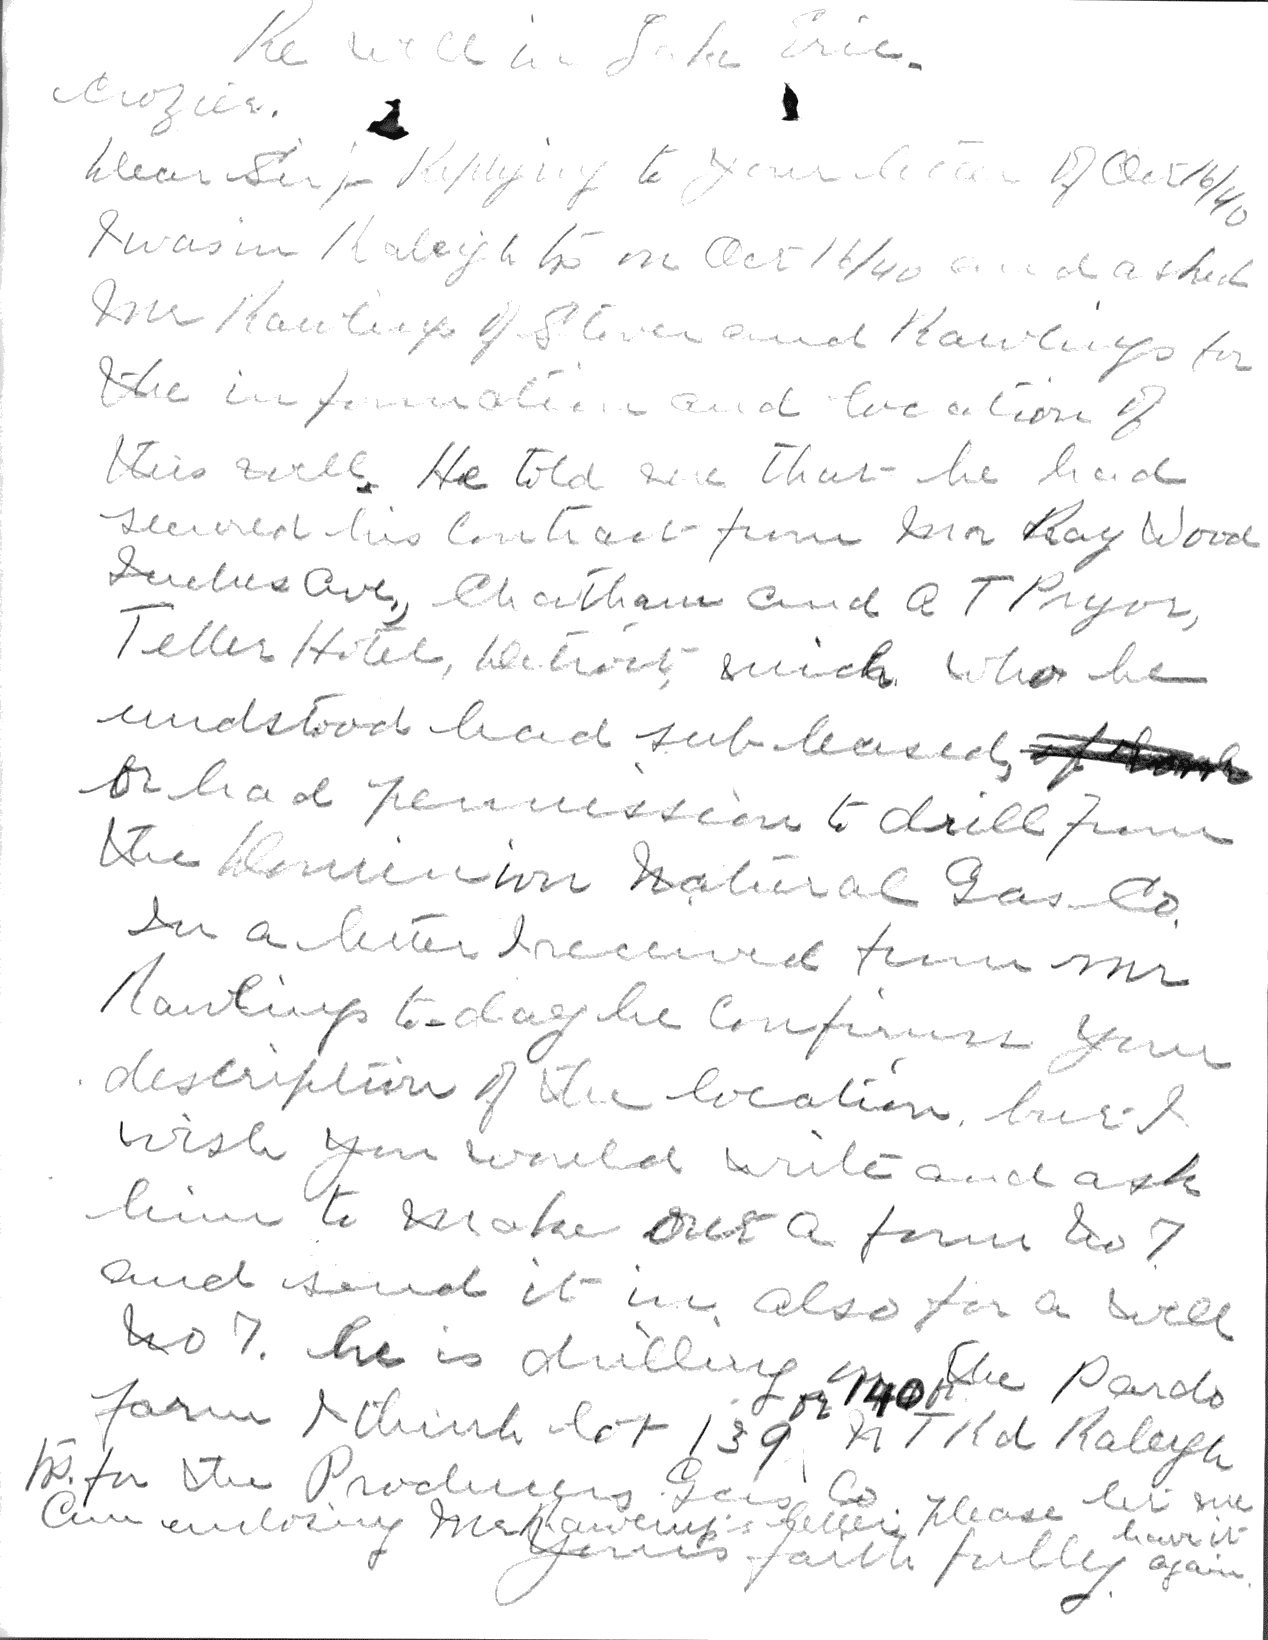 Re well in Lake Erie.
Crozier.
Dear Sir;- Replying to your letter of Oct 16/40
I was in Raleigh tp on Oct 16/40 and asked
Mr Rawlings of Stover and Rawlings for
the information and location of
this well. He told me that he had
secured his contract from Mr Ray Wood
Ave., Chatham and A T Pryor,
Teller Hotel, Detroit, Mich. who he
undstood had sub-leased,
or had permission to drill from
the Dominion Natural Gas Co.
In a letter I received from Mr
Rawlings to-day he confirms your
description of the location, but I
wish you would write and ask
him to make out a form No 7
and send it in, also for a well
No 7. he is drilling on the Pardo
farm I think lot 139 or 140 or N T Rd Raleigh
tp. for the Producers Gas Co.
Am enclosing Mr Rawlings letter. please let me have it again.
Yours faithfully